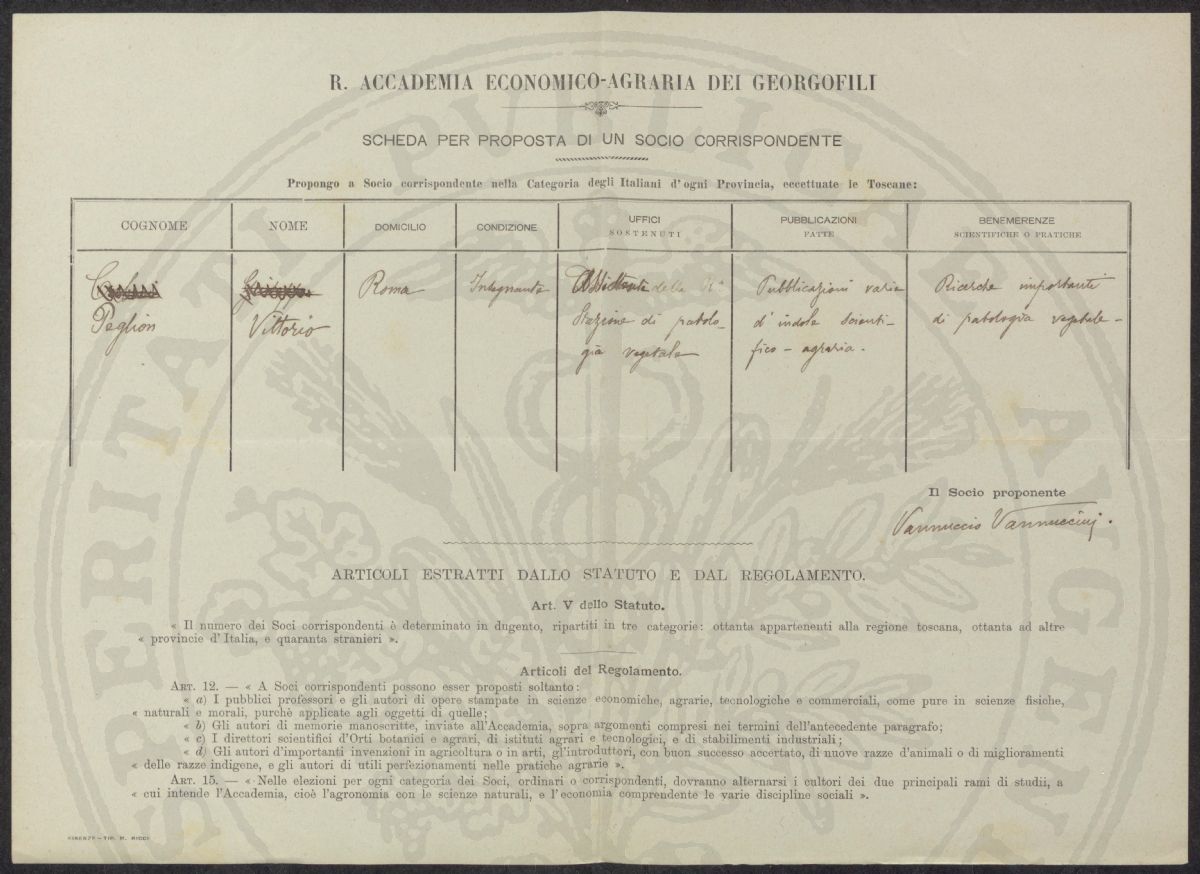 R. ACCADEMIA ECONOMICO-AGRARIA DEI GEORGOFILI
SCHEDA PER PROPOSTA DI UN SOCIO CORRISPONDENTE
Propongo a Socio corrispondente nella Categoria degli Italiani d'ogni Provincia, eccettuate le Toscane:
COGNOME
Peglion
NOME
Vittorio
DOMICILIO
Roma
CONDIZIONE
Insegnante
UFFICI
SOSTENUTI
Assistente della Rª
Stazione di patolo-
gia vegetale
PUBBLICAZIONI
FATTE
Pubblicazioni varie
d'indole scienti-
fico-agraria.
BENEMERENZE
SCIENTIFICHE O PRATICHE
Ricerche importanti
di patologia vegetale-
Il Socio proponente
Vannuccio Vannuccini.
ARTICOLI ESTRATTI DALLO STATUTO E DAL REGOLAMENTO.
Art. V dello Statuto.
« Il numero dei Soci corrispondenti è determinato in dugento, ripartiti in tre categorie: ottanta appartenenti alla regione toscana, ottanta ad altre
« provincie d'Italia, e quaranta stranieri ».
Articoli del Regolamento.
ART. 12. — « A Soci corrispondenti possono esser proposti soltanto:
« a) I pubblici professori e gli autori di opere stampate in scienze economiche, agrarie, tecnologiche e commerciali, come pure in scienze fisiche,
« naturali e morali, purchè applicate agli oggetti di quelle;
« b) Gli autori di memorie manoscritte, inviate all'Accademia, sopra argomenti compresi nei termini dell'antecedente paragrafo;
« c) I direttori scientifici d'Orti botanici e agrari, di istituti agrari e tecnologici, e di stabilimenti industriali;
« d) Gli autori d'importanti invenzioni in agricoltura o in arti, gl'introduttori, con buon successo accertato, di nuove razze d'animali o di miglioramenti
« delle razze indigene, e gli autori di utili perfezionamenti nelle pratiche agrarie ».
ART. 15. — « Nelle elezioni per ogni categoria dei Soci, ordinari o corrispondenti, dovranno alternarsi i cultori dei due principali rami di studii, a
« cui intende l'Accademia, cioè l'agronomia con le scienze naturali, e l'economia comprendente le varie discipline sociali ».
FIRENZE - TIP. M. RICCI
PROSPERITATI PUBLICAE AUGENDAE